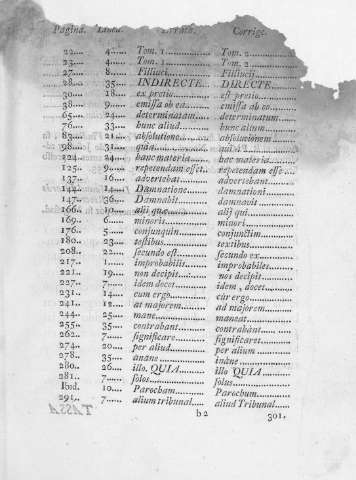 Pagina. Linea. Errata. Corrige.
22.... 4.... Tom. 1.... Tom. 2....
23.... 4.... Tom. 1.... Tom. 2....
27.... 8.... Filliuci.... Filliucii....
28.... 35.... INDIRECTE.... DIRECTE....
30.... 18.... et pretio.... est pretio....
38.... 9.... emissa ob ea.... emissa ab eo....
65.... 24.... determinatam.... determinatum....
76.... 33.... hunc aliud.... hunc alium....
83.... 21.... absolutione.... absolutionem....
98.... 31.... quia.... qui
124.... 24.... hanc materia.... hac materia....
125.... 9.... repetendam esset.... repetendam esse....
137.... 16.... advertebat.... advertebant....
144.... 14.... Damnatione.... damnationi....
147.... 36.... Damnabit.... damnavit....
166.... 10.... alii quæ.... alij qui....
169.... 6.... minoris.... minori....
176.... 5.... conjunquin.... conjunctim....
180.... 23.... testibus.... textibus....
208.... 22.... secundo est.... secundo ex....
217.... 1.... improbabilis.... improbabiles....
221.... 19.... non decipit.... nos decipit....
227.... 7.... idem docet.... idem, docet....
231.... 14.... cum ergo.... cùr ergo....
241.... 12.... at majorem.... ad majorem....
244.... 25.... mane.... maneat....
255.... 35.... contrabant.... contrabànt....
262.... 7.... significare.... significaret....
274.... 20.... per aliud.... per alium....
278.... 35.... anane.... inane....
280.... 26.... illo. QUIA.... illo QUIA....
281.... 7.... solos.... solus....
Ibid. 10.... Parocham.... Parochum....
291.... 7.... alium tribunal.... aliud Tribunal....
b 2 301.